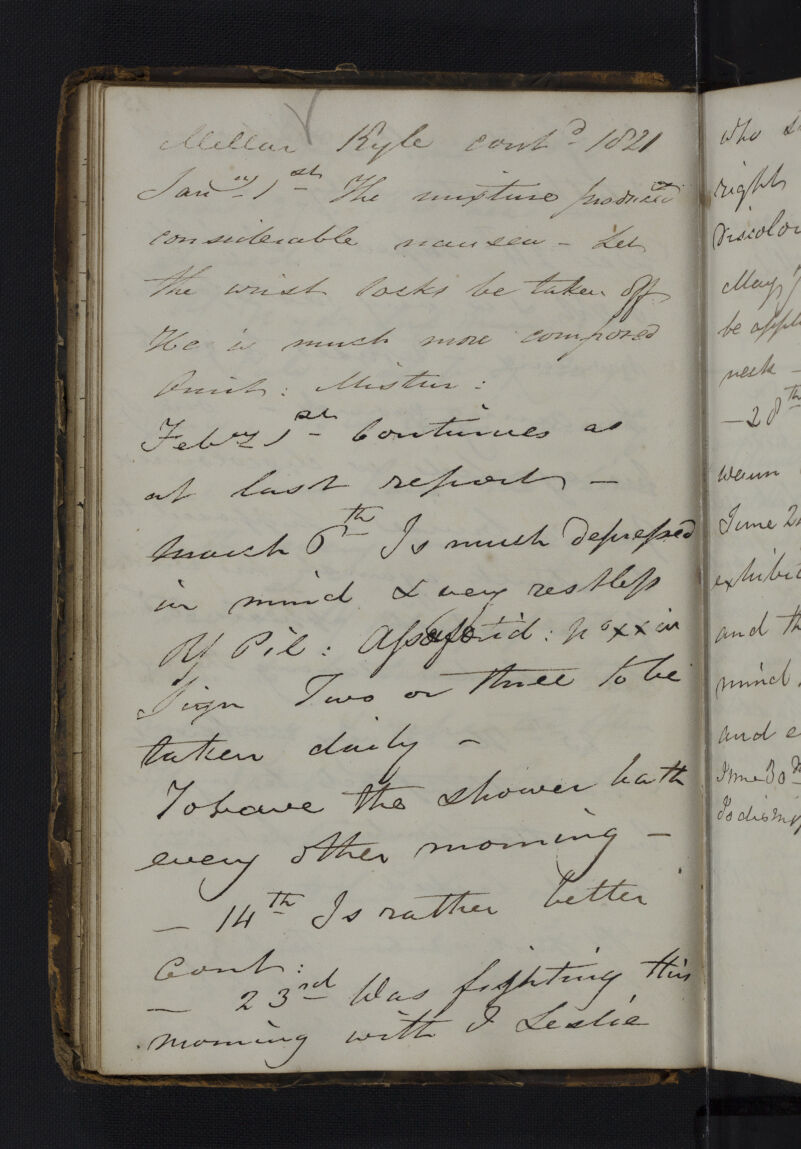 Millar Kyle cont^d 1821
Jan^y 1^st The mixture produced
considerable nausea - Let
the wrist locks be taken off
He is much more composed
Omit: Mistur:
Feb^y 1^st Continues as
at last report -
March 6^th Is much depressed
in mind & very restless
℞ Pil: Assafoetid: N^o xxiv
Sign Two or three to be
taken daily -
To have the shower bath
every other morning -
- 14^th Is rather better
Cont:
- 23^rd Was fighting this
morning with J Leslie
who
right
discolou
May
be appli
neck -
- 28^th
warm
June 2
exhibit
and th
mind
and e
June 30^th
Is dismiss